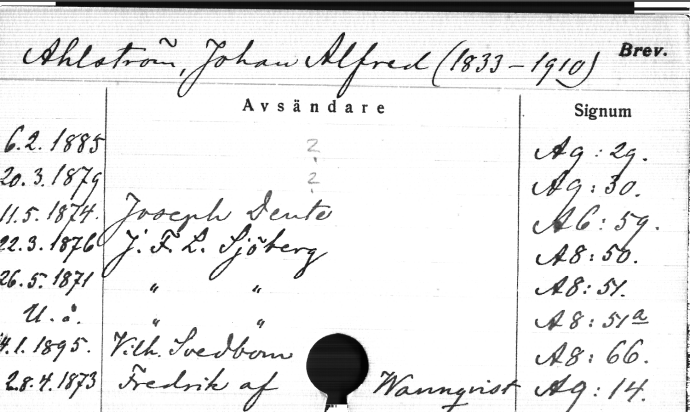 Ahlström, Johan Alfred (1833–1910) Brev.
Avsändare Signum
6.2. 1885 ? A9: 29.
20.3. 1879 ? A9: 30.
11.5. 1874. Joseph Dente A6: 59.
22.3. 1876 J. F. L. Sjöberg A8: 50.
26.5. 1871 " " A8: 51.
U. å. " " A8: 51a
4.1. 1895. Vilh. Svedbom A8: 66.
28.4. 1873 Fredrik af Wannqvist A9: 14.